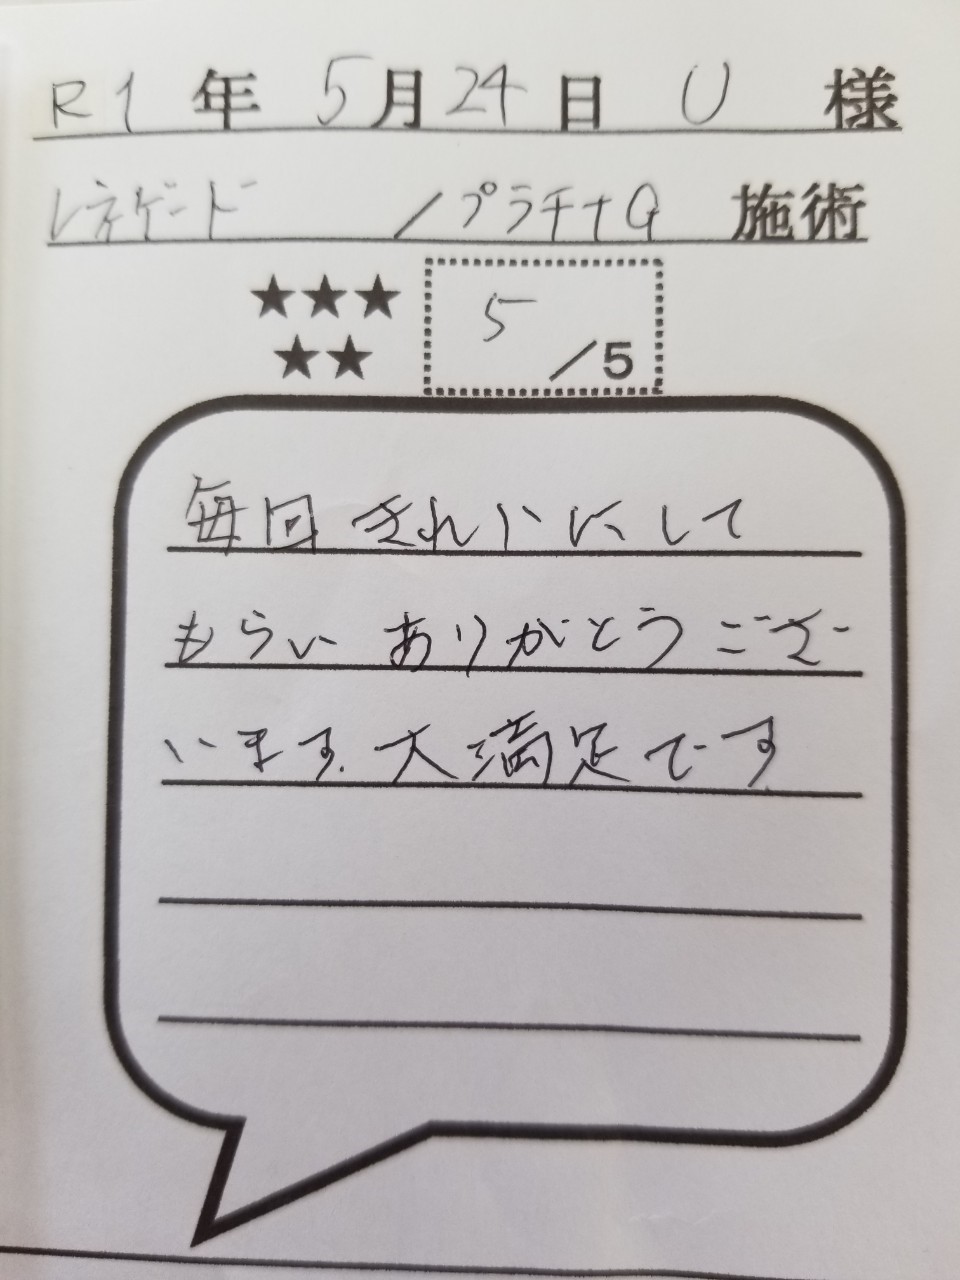 R1 年 5月24日 U 様
レネゲード /プラチナG 施術
★★★
★★
5 /5
毎回きれいにして
もらいありがとうござ
います.大満足です